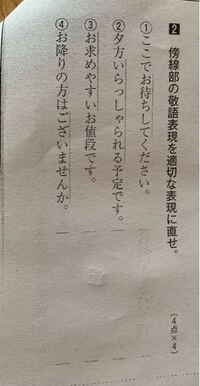 2 傍線部の敬語表現を適切な表現に直せ。(4点×4)
①ここでお待ちしてください。
②夕方いらっしゃられる予定です。
③お求めやすいお値段です。
④お降りの方はございませんか。